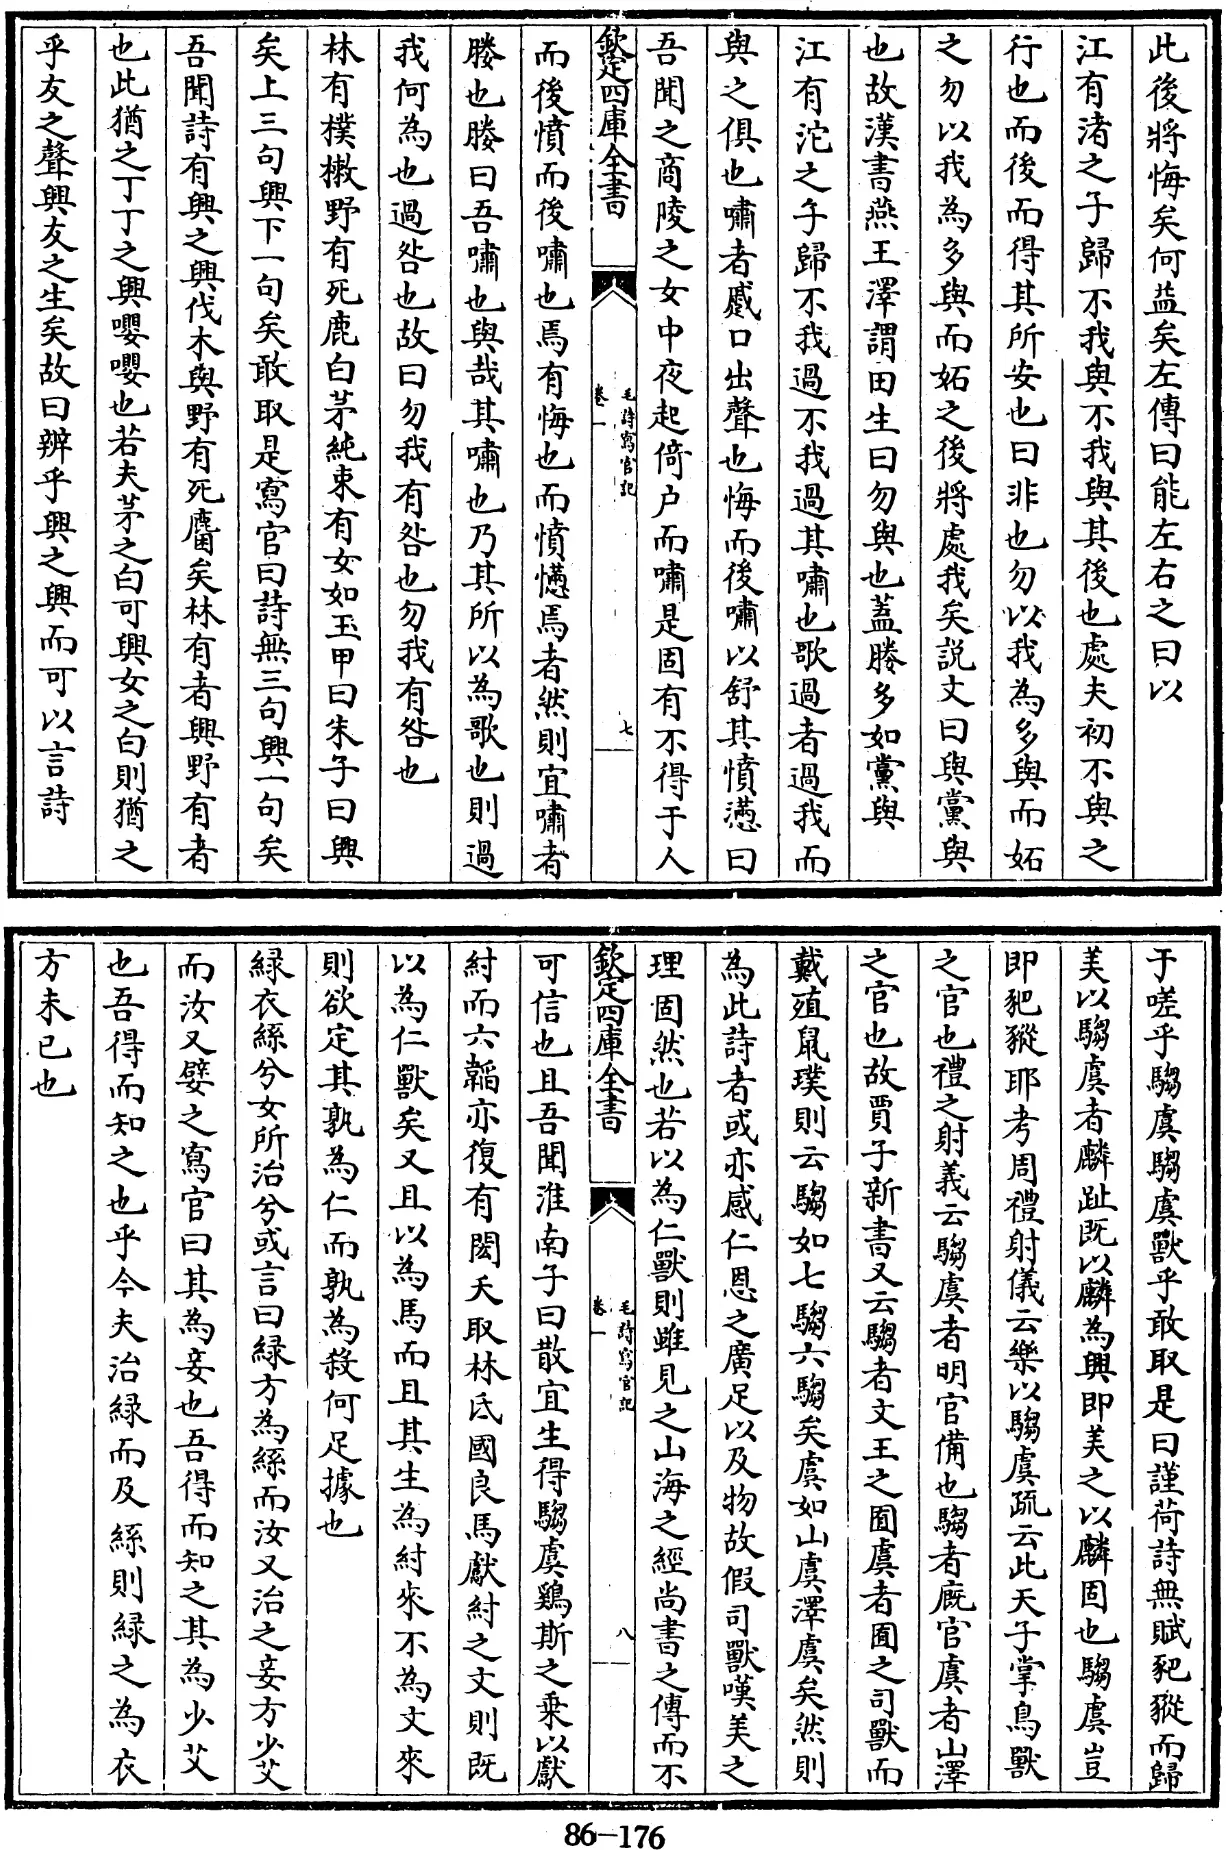 此後將悔矣何益矣左傳曰能左右之曰以
江有渚之子歸不我與不我與其後也處夫初不與之
行也而後而得其所安也曰非也勿以我為多與而妬
之勿以我為多與而妬之後將處我矣説文曰與黨與
也故漢書燕王澤謂田生曰勿與也蓋媵多如黨與
江有沱之子歸不我過不我過其嘯也歌過者過我而
與之俱也嘯者蹙口出聲也悔而後嘯以舒其憤懣曰
吾聞之商陵之女中夜起倚户而嘯是固有不得于人
欽定四庫全書
毛詩寫官記
卷一
七
而後憤而後嘯也焉有悔也而憤懣焉者然則宜嘯者
媵也媵曰吾嘯也與哉其嘯也乃其所以為歌也則過
我何為也過咎也故曰勿我有咎也勿我有咎也
林有樸樕野有死鹿白茅純束有女如玉甲曰朱子曰興
矣上三句興下一句矣敢取是寫官曰詩無三句興一句矣
吾聞詩有興之興伐木與野有死麕矣林有者興野有者
也此猶之丁丁之興嚶嚶也若夫茅之白可興女之白則猶之
乎友之聲興友之生矣故曰辨乎興之興而可以言詩
于嗟乎騶虞騶虞獸乎敢取是曰謹荷詩無賦豝豵而歸
美以騶虞者麟趾既以麟為興即美之以麟固也騶虞豈
即豝豵耶考周禮射儀云樂以騶虞疏云此天子掌鳥獸
之官也禮之射義云騶虞者明官備也騶者廐官虞者山澤
之官也故賈子新書又云騶者文王之囿虞者囿之司獸而
戴埴鼠璞則云騶如七騶六騶矣虞如山虞澤虞矣然則
為此詩者或亦感仁恩之廣足以及物故假司獸嘆美之
理固然也若以為仁獸則雖見之山海之經尚書之傳而不
欽定四庫全書
毛詩寫官記
卷一
八
可信也且吾聞淮南子曰散宜生得騶虞鷄斯之乗以獻
紂而六韜亦復有閎夭取林氏國良馬獻紂之文則既
以為仁獸矣又且以為馬而且其生為紂來不為文來
則欲定其孰為仁而孰為殺何足據也
緑衣絲兮女所治兮或言曰緑方為絲而汝又治之妾方少艾
而汝又嬖之寫官曰其為妾也吾得而知之其為少艾
也吾得而知之也乎今夫治緑而及絲則緑之為衣
方未已也
86-176